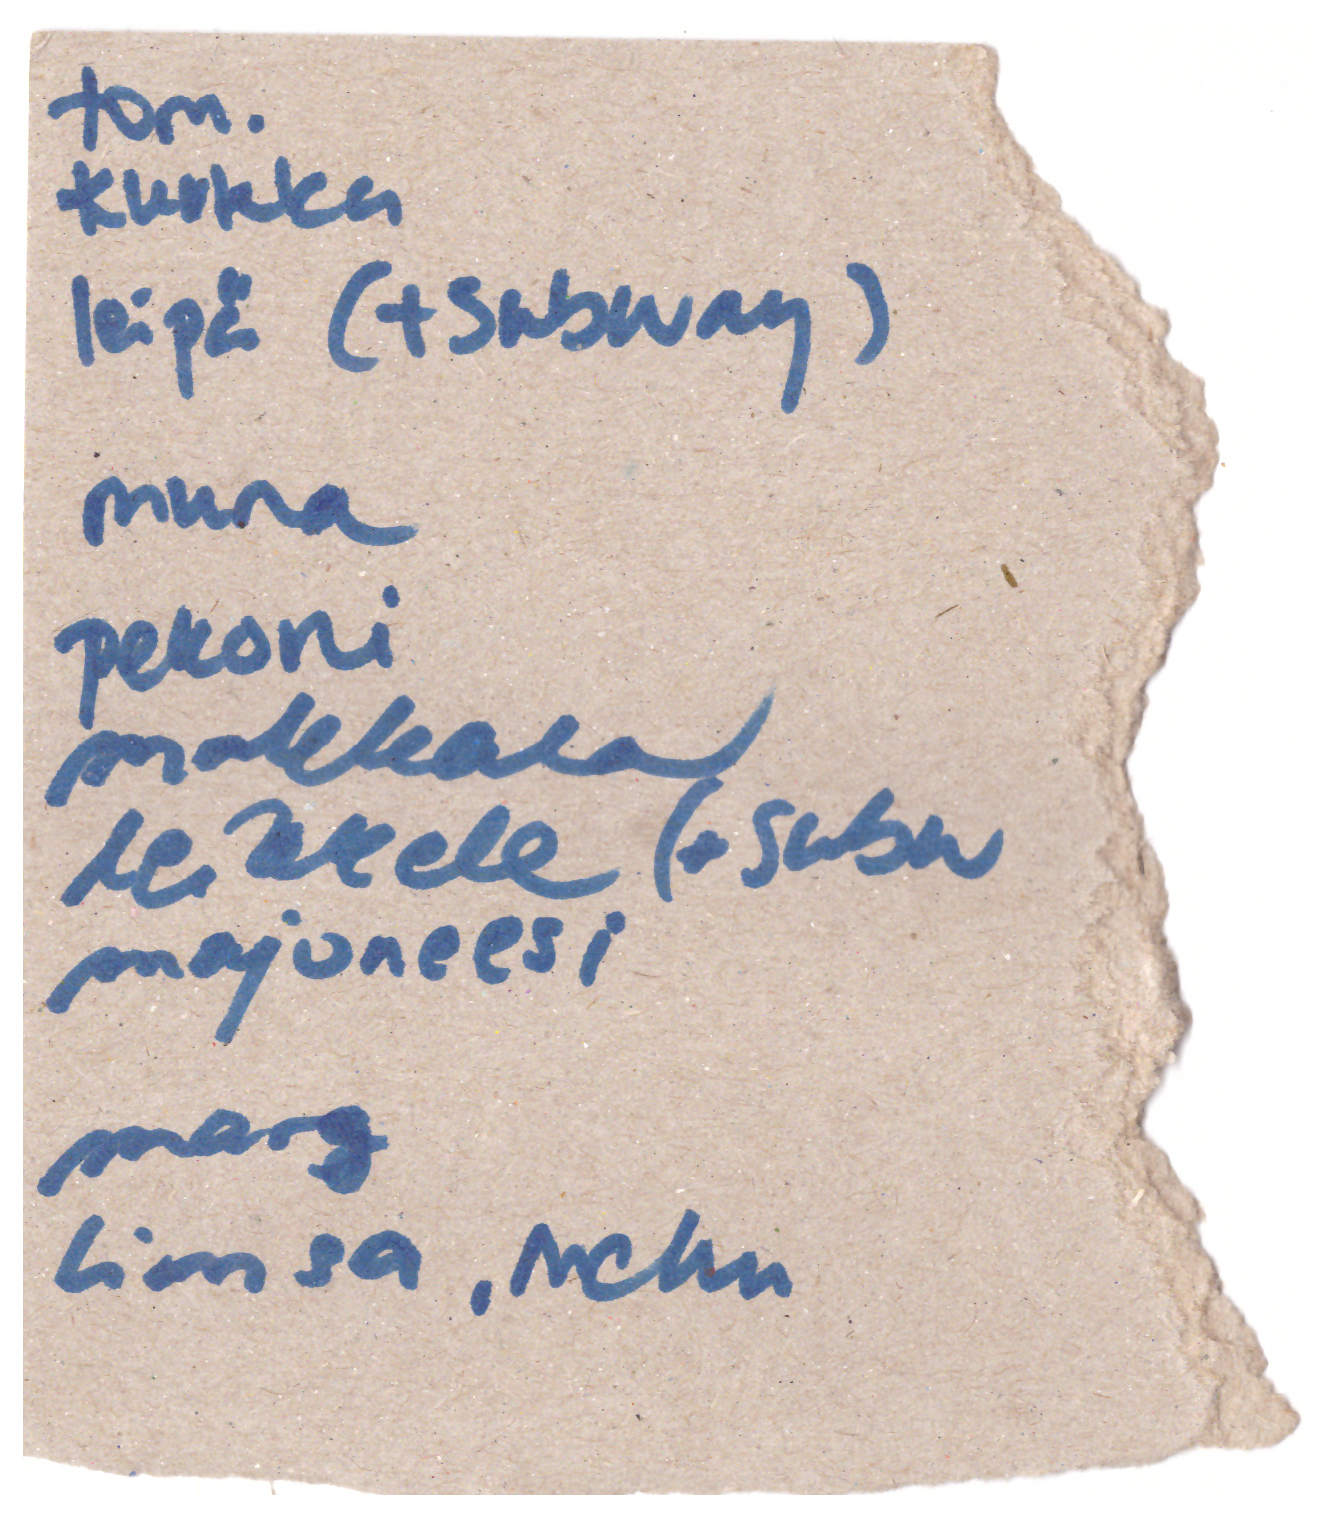 tom.
kurkku
leipä (+Subway)
muna
pekoni
makkara
leikkele (+Subw
majoneesi
marg
Limsa, Mehu